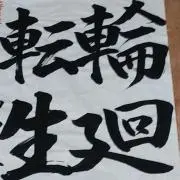 輪転
廻生